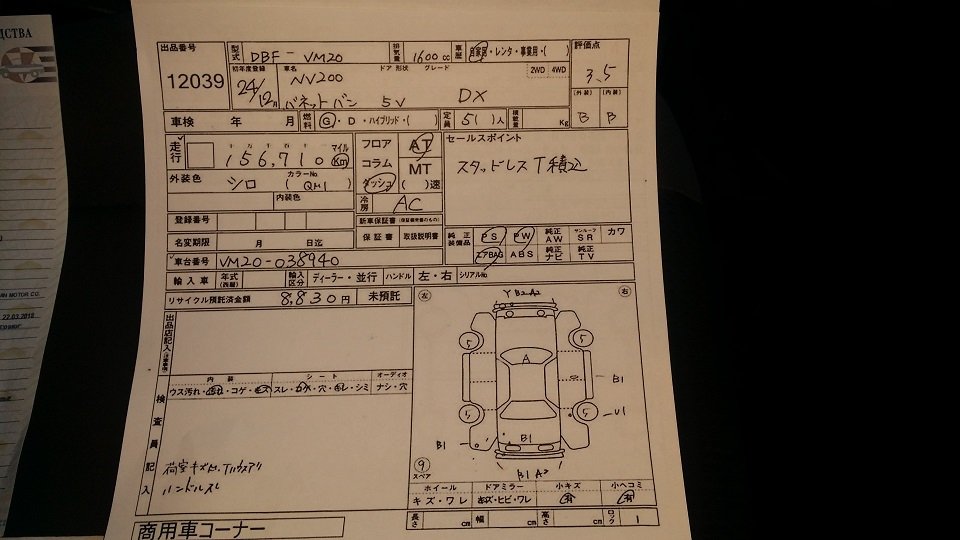 ДСТВА
MOTOR CO.
22.03.2018
出品番号 型式 DBF - VM20 排気量 1600 cc 車歴 自家用・レンタ・事業用・( ) 評価点
12039 3.5
初年度登録 車名 ドア 形状 グレード 2WD 4WD
24/12月 NV200
バネットバン 5V DX
(外装) (内装)
B B
車検 年 月 燃料 G・D・ハイブリッド・( ) 定員 5( )人 積載量 Kg
走行 十万 万 千 百 十 マイル
156,710 Km
フロア AT
コラム MT
ダッシュ ( )速
セールスポイント
スタッドレスT積込
外装色 シロ カラーNo. (QM1)
内装色
冷房 AC
登録番号
新車保証書
保証書 取扱説明書
名変期限 月 日迄
純正装備品 PS PW 純正AW サンルーフSR カワ
エアBAG ABS 純正ナビ 純正TV
車台番号 VM20-038940
輸入車 年式 輸入区分 ディーラー・並行 ハンドル 左・右 シリアルNo.
リサイクル預託済金額 8,830円 未預託
左 右
出品店記入
Y B2 A2
5 5
A
B1
5 5 U1
B1 B1
9 スペア
B1 A2
内装 シート オーディオ
ウス汚れ・汚れ・コゲ・キズ スレ・コゲ・穴・キレ・シミ ナシ・穴
検査員記入
ハンドルスレ
ホイール ドアミラー 小キズ 小ヘコミ
キズ・ワレ キズ・ヒビ・ワレ 有 有
長さ cm 幅 cm 高さ cm ロック 1
商用車コーナー